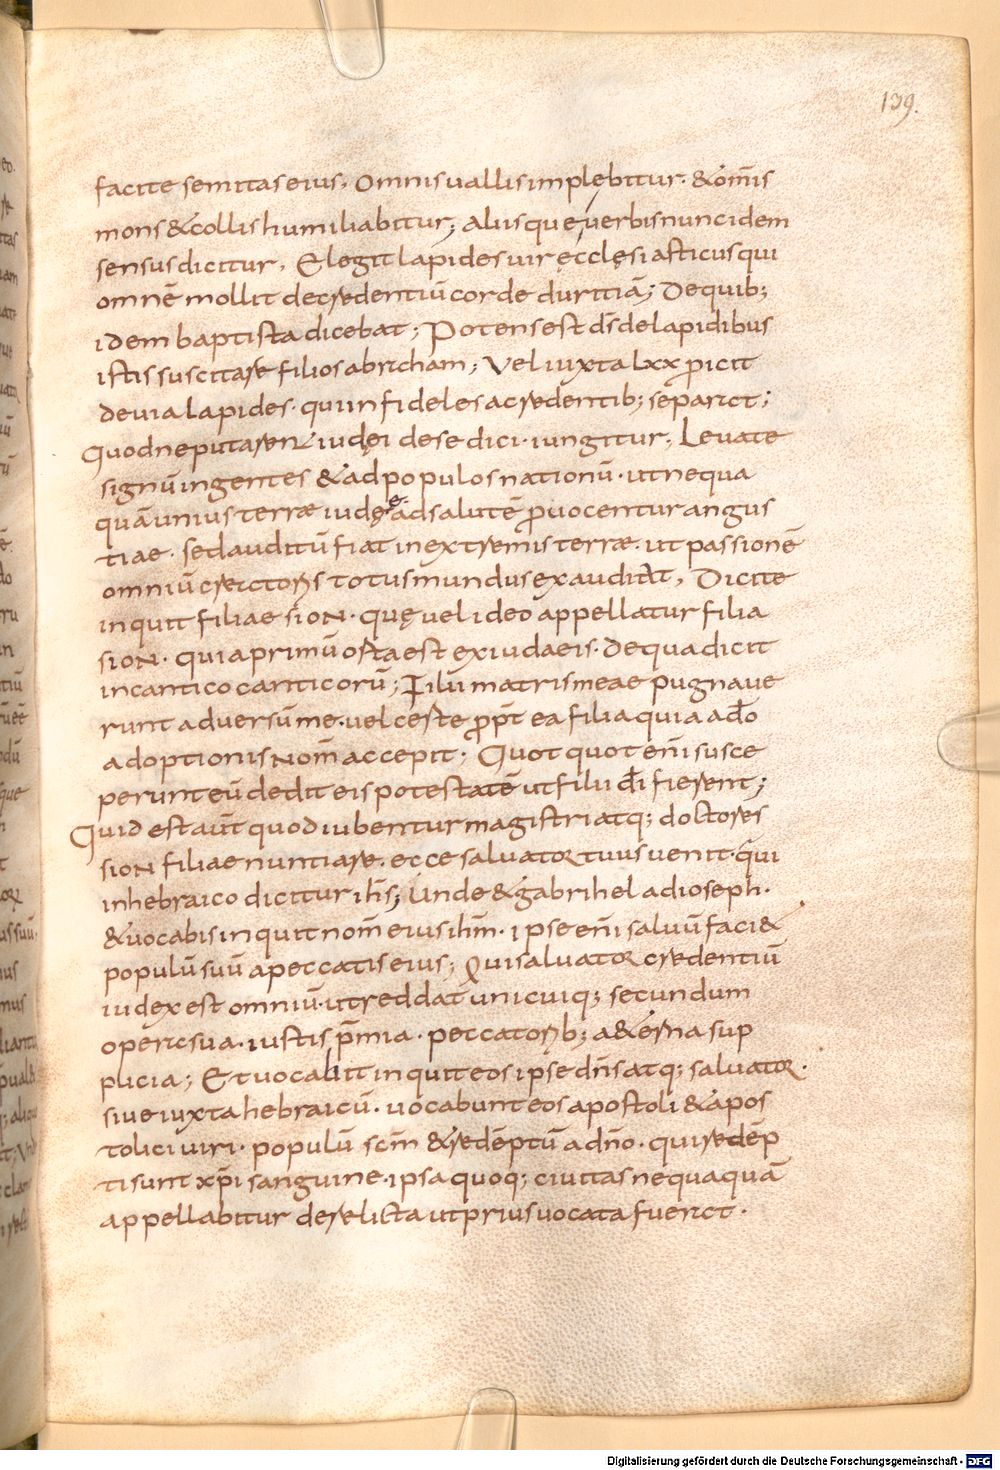 139.
facite semitas eius. Omnis uallis implębitur. & om̄is
mons & collis humiliabitur; aliisque uerbis nunc idem
sensus dicitur. Elegit lapides uir ęcclęsiasticus qui
omnē mollit de credentiū corde duritiā; De quib;
idem baptista dicebat; Potens est d̄s de lapidibus
istis suscitare filios abraham; Vel iuxta lxx proicit
de uia lapides. qui infideles a credentib; separat;
Quod ne putarent iudęi de se dici. iungitur; Leuate
signū in gentes & ad populos nationū. ut nequa
quā unius terræ iudęę ad salutē prouocentur angus
tiae. sed auditū fiat in extremis terræ. ut passionē
omniū creatoris totus mundus exaudiat. Dicite
inquit filiae sion. quę uel ideo appellatur filia
sion. quia primū orta est ex iudaeis. De qua dicit
in cantico canticorū; Filii matris meae pugnaue
runt aduersū me. uel certe propt̄ ea filia quia a d̄o
adoptionis nom̄ accepit; Quotquot enī susce
perunt eū dedit eis potestatē ut filii d̄i fierent;
Quid est aut̄ quod iubentur magistri atq; doctores
sion filiae nuntiare. ecce saluator tuus uenit. qui
in hebraico dicitur ih̄s; Unde & gabrihel ad ioseph.
& uocabis inquit nom̄ eius ih̄m. ipse enī saluū faci&
populū suū a peccatis eius; Qui saluator credentiū
iudex est omniū. ut reddat unicuiq; secundum
opera sua. iustis p̄mia. peccatorib; a&erna sup
plicia; Et uocabit inquit eos ipse dn̄s atq; saluator.
siue iuxta hebraicū. uocabunt eos apostoli & apos
tolici uiri. populū sc̄m & redēptū a dn̄o. qui redēp
ti sunt xp̄i sanguine. ipsa quoq; ciuitas nequaquā
appellabitur derelicta ut prius uocata fuerat.
Digitalisierung gefördert durch die Deutsche Forschungsgemeinschaft - DFG